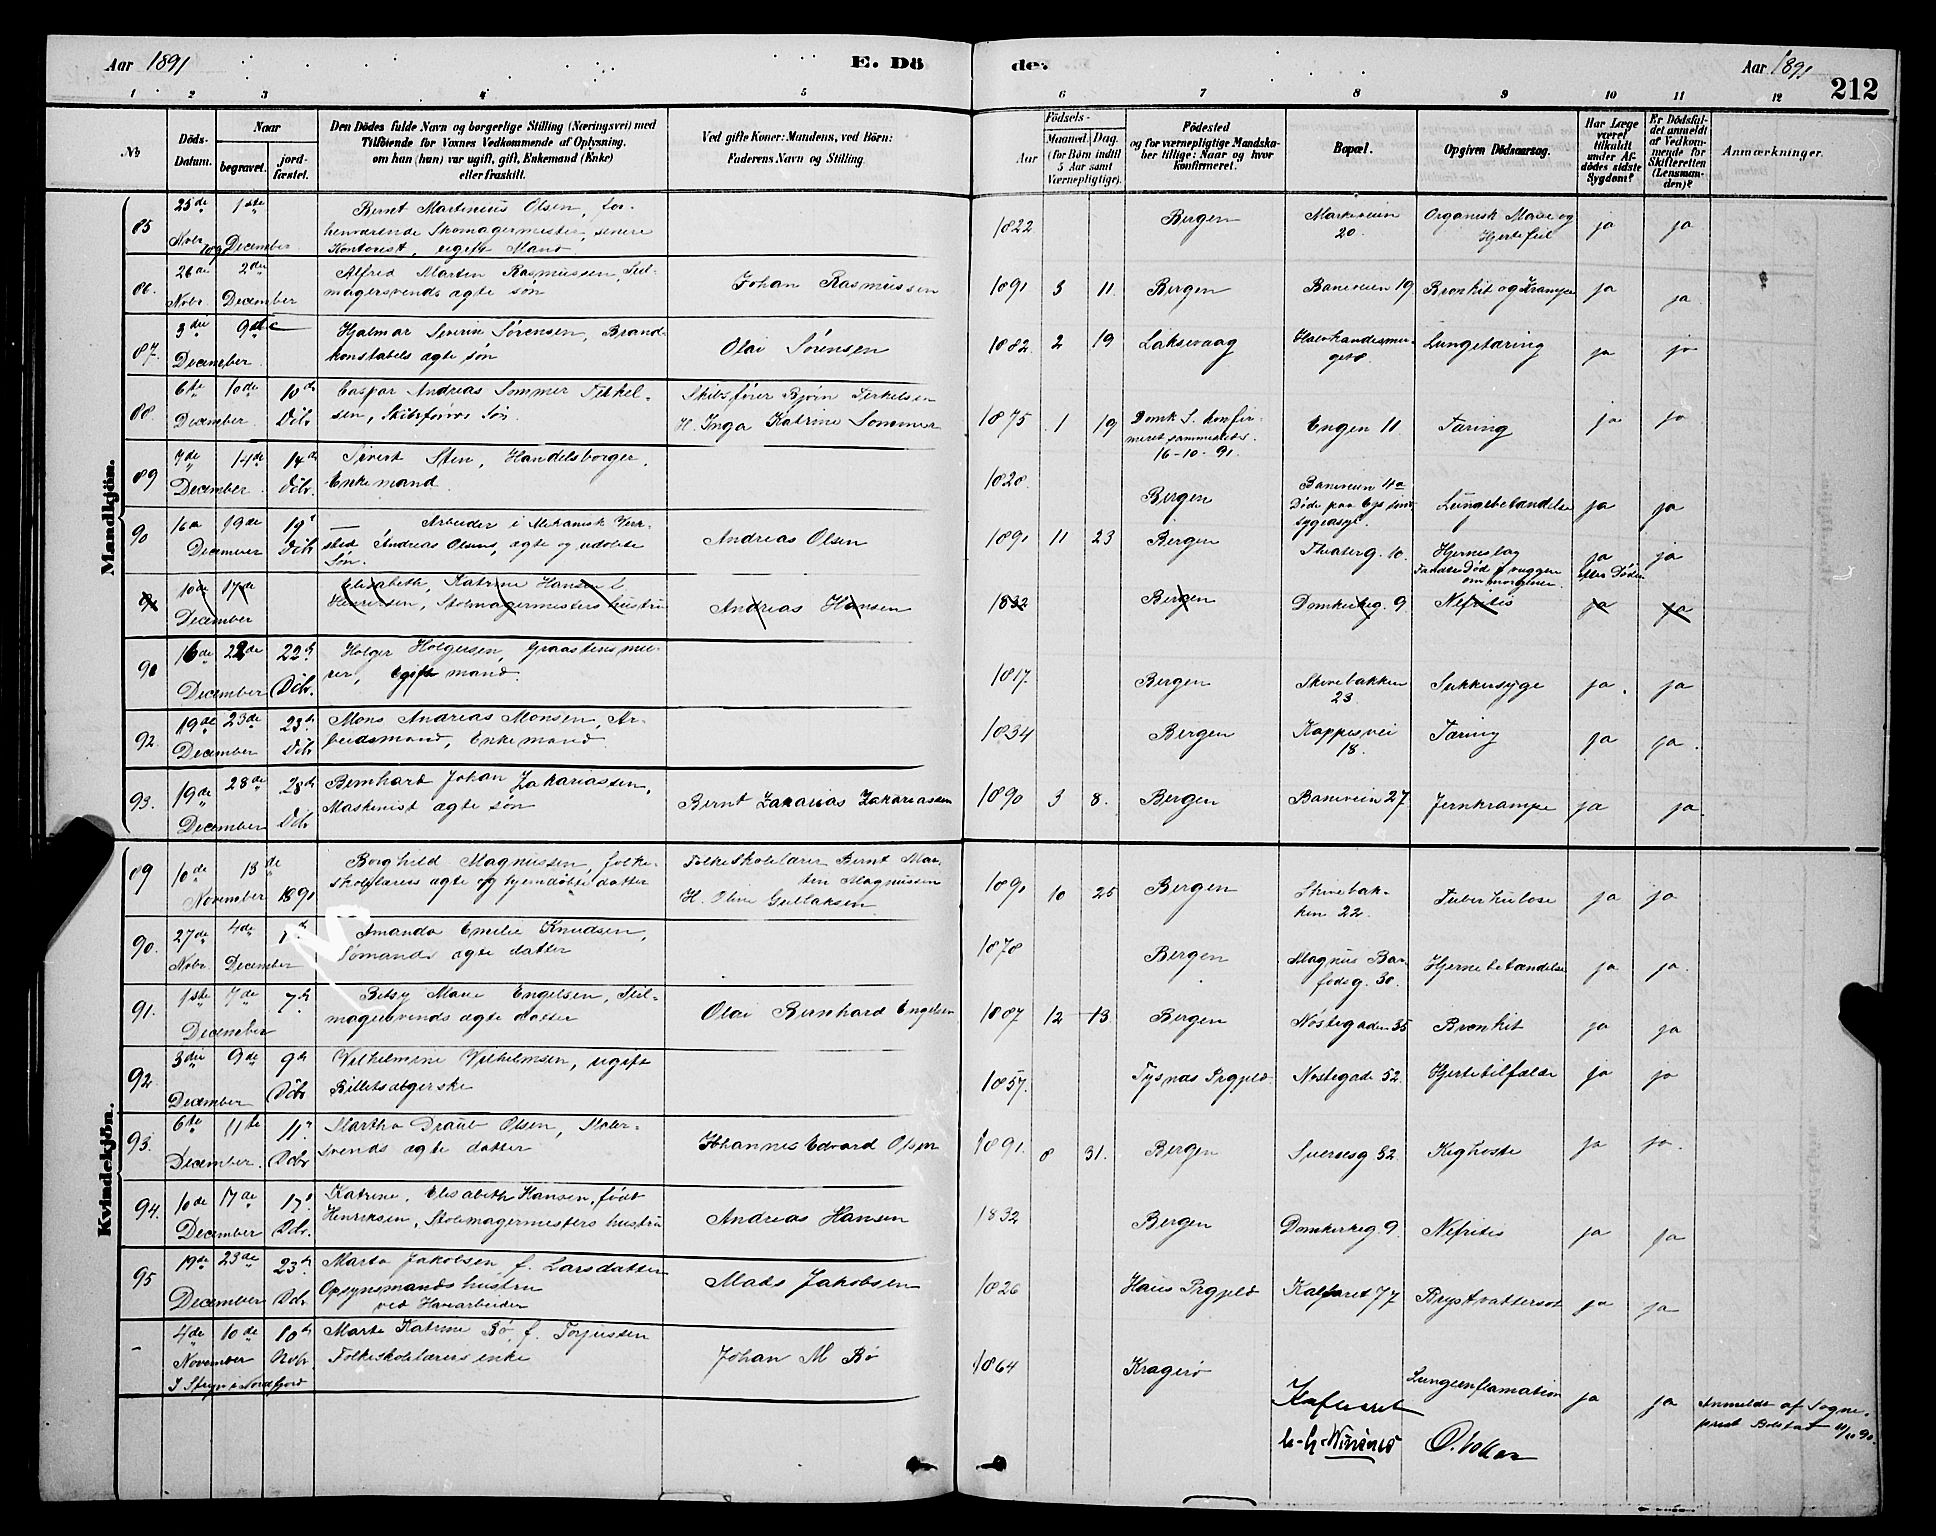 Aar 1891
E. Dö
de.
Aar 1891
212
1 2 3 4 5 6 7 8 9 10 11 12
No
Döds-Datum.
Naar
begravet.
jordfæstet.
Den Dödes fulde Navn og borgerlige Stilling (Næringsvei) med
Tilföiende for Voxnes Vedkommende af Oplysning,
om han (hun) var ugift, gift, Enkemand (Enke)
eller fraskilt.
Ved gifte Koner: Mandens, ved Börn:
Faderens Navn og Stilling.
Födsels-
Aar
Maaned.
Dag.
(for Börn indtil
5 Aar samt
Værnepligtige).
Födested
og for værnepligtige Mandskaber tillige: Naar og hvor
konfirmeret.
Bopæl.
Opgiven Dödsaarsag.
Har Læge
været
tilkaldt
under Afdödes sidste
Sygdom?
Er Dödsfaldet anmeldt
af Vedkommende for
Skifteretten
(Lensmanden)?
Anmærkninger.
Mandkjön.
85 25de Nvbr 1ste December Bernt Martinius Olsen, forhenværende Skomagermester, senere Kontorist, ugift Mand 1822 Bergen Markeveien 20. Organisk Mave og Hjertefeil ja ja
86. 26de Nobr. 2den December Alfred Martin Rasmussen, Seilmagersvends ægte søn Johan Rasmussen 1891 3 11. Bergen Baneveien 19 Bronkit og Krampe ja ja
87. 3die December 9de Hjalmar Severin Sørensen, Brandkonstabels ægte søn Olai Sörensen 1882 2 19 Laksevaag Lungetæring ja ja
88. 6te December 10de 10de Dcbr Caspar Andreas Sommer Terkelsen, Skibsførers Søn. Skibsfører Bjørn Terkelsen H. Inga Katrine Sommer 1875 1 19 Domk S. konfirmeret sammesteds. 16-10-91 Engen 11 Tæring ja ja
89 7de December 14de 14de Dcbr. Sivert Sten, Handelsborger. Enkemand. 1828. Bergen Baneveien 11a Døde paa sygeasyl. Lungebetændelse ja ja
90 16de December 19de 19de Dcbr — Arbeider i Mekanisk Verksted Andreas Olsens, ægte og udøbte Søn. Andreas Olsen 1891 11 23 Bergen Theaterg. 10. Hjerneslag Fandtes Død i vuggen om morgenen ja efter Døden ja
91 10de December 17de Elisabeth, Katrine Hansen f. Henriksen, Stolmagermesters hustru Andreas Hansen 1832 Bergen Domkirkeg. 9 Nefritis ja ja
91 16de December 22de 22de Dcbr. Holger Holgersen, Graastensmurer, Ugift mand. 1817. Bergen Skivebakken 23 Sukkersyge ja. ja
92. 19de December 23de 23de Dcbr Mons Andreas Monsen, Arbeidsmand, Enkemand 1834 Bergen Kappesvei 18. Tæring ja ja.
93. 19de December 28de 28de Dcbr Bernhard Johan Zakariassen, Maskinist ægte søn Bernt Zakarias Zakariassen 1890 3 8. Bergen Baneveien 27 Jernkrampe ja ja.
Kvindekjön.
89 10de November 13de 1891 Borghild Magnussen, folkeskolelærers ægte og hjemdøbte datter Folkeskolelærer Bernt Martin Magnussen H. Oline Gullaksen 1890 10 25 Bergen Skivebakken 22. Tuberkulose ja ja
90. 27de Nobr. 4de December Amanda Emelie Knudsen, Sømands ægte datter 1878 Bergen Magnus Barfodsg. 30. Hjernebetændelse ja ja.
91. 1ste December 7de 7de Betsy Marie Engelsen, Seilmagersvends ægte datter Olai Bernhard Engelsen 1887 12 13. Bergen Nöstegaden 35 Bronkit ja ja
92. 3die December 9de 9de Dcbr Vilhelmine Vilhelmsen, ugift Billetsælgerske 1857. Tysnæs Prgjeld. Nöstegade 52. Hjertetilfælde ja ja
93. 6te December. 11te 11te Dcbr Martha Olsen, Malersvends ægte datter Johannes Edvard Olsen 1891. 8 31. Bergen Sverresg 52. Kighoste ja ja.
94. 10de December 17de 17de Dcbr. Katrine, Elisabeth Hansen, født Henriksen, Stolmagermesters hustru Andreas Hansen 1832 Bergen Domkirkeg. 9. Nefritis ja ja
95 19de December 23de 23de Dcbr Marta Jakobsen f. Larsdatter Opsynsmands hustru ved Havnearbeider Mads Jakobsen 1826 Haus Prgjeld Kalfaret 77 Brystvattersot ja ja
- 4de November 10de 10de Nvbr I Stryn i Nordfjord Marte Katrine Bö, f. Torjussen Folkeskolelærers enke Johan M Bö 1864 Kragerö Kalfaret Lungeinflamation ja ja Anmeldt af Sogneprest Bolstad 11/11 90.